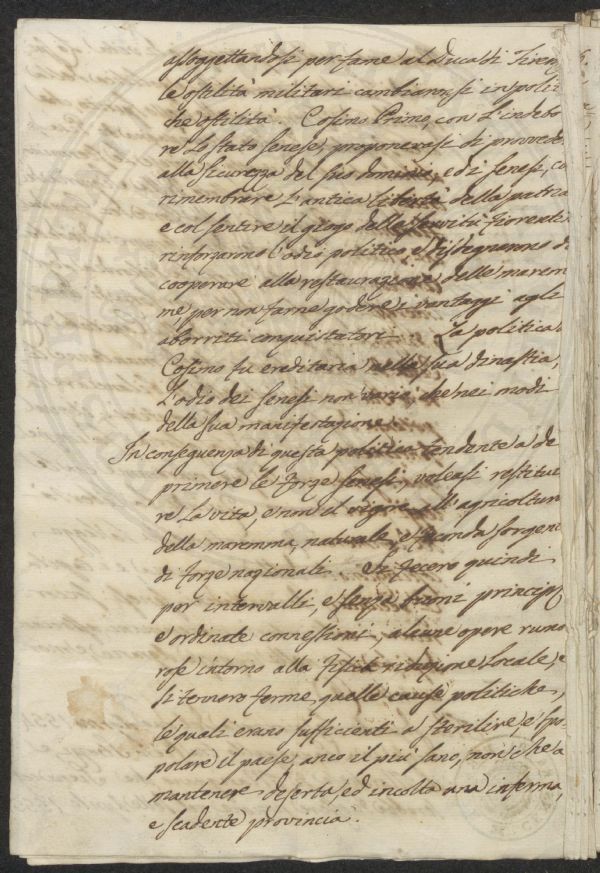 assoggettandosi per fame al Duca di Firen
le ostilità militari cambiaronsi in poliz
che ostilità. Cosimo Primo, con l'indebo
re lo stato senese, proponevasi di provveder
alla sicurezza del suo dominio, ed i senesi, co
rimembrare l'antica libertà della patria
e col sentire il giogo della servitù fiorenti
rinforzarono l'odio politico, e disdegnarono di
cooperare alla restaurazione delle marem
me per non farne godere i vantaggi agli
aborriti conquistatori. La politica
Cosimo fu ereditaria nella sua dinastia,
L'odio dei senesi non variò che nei modi
della sua manifestazione.
In conseguenza di questa politica tendente a de
primere le forze senesi, voleasi restitui
re la vita, e non il vigore all'agricoltur
della maremma, naturale, e feconda sorgent
di forze nazionali. Si fecero quindi
per intervalli, e senza buoni principj
e ordinate connessioni, alcune opere rumo
rose intorno alla fisica riduzione locale, e
si tennero ferme quelle cause politiche,
le quali erano sufficienti a sterilire, e spo
polare il paese, anco il più sano, non che a
mantenere deserta, ed incolta una inferma,
e scadente provincia.